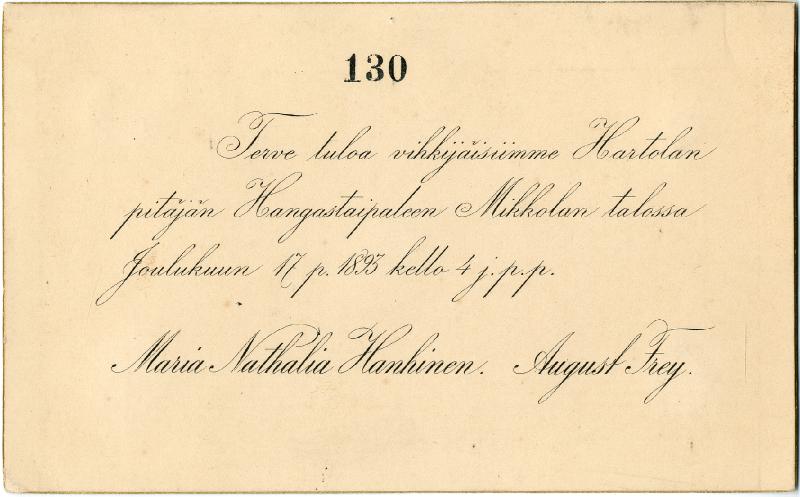 130
Terve tuloa vihkijäisiimme Hartolan
pitäjän Hangastaipaleen Mikkolan talossa
Joulukuun 17 p. 1893 kello 4 j. p. p.
Maria Nathalia Hanhinen. August Frey.